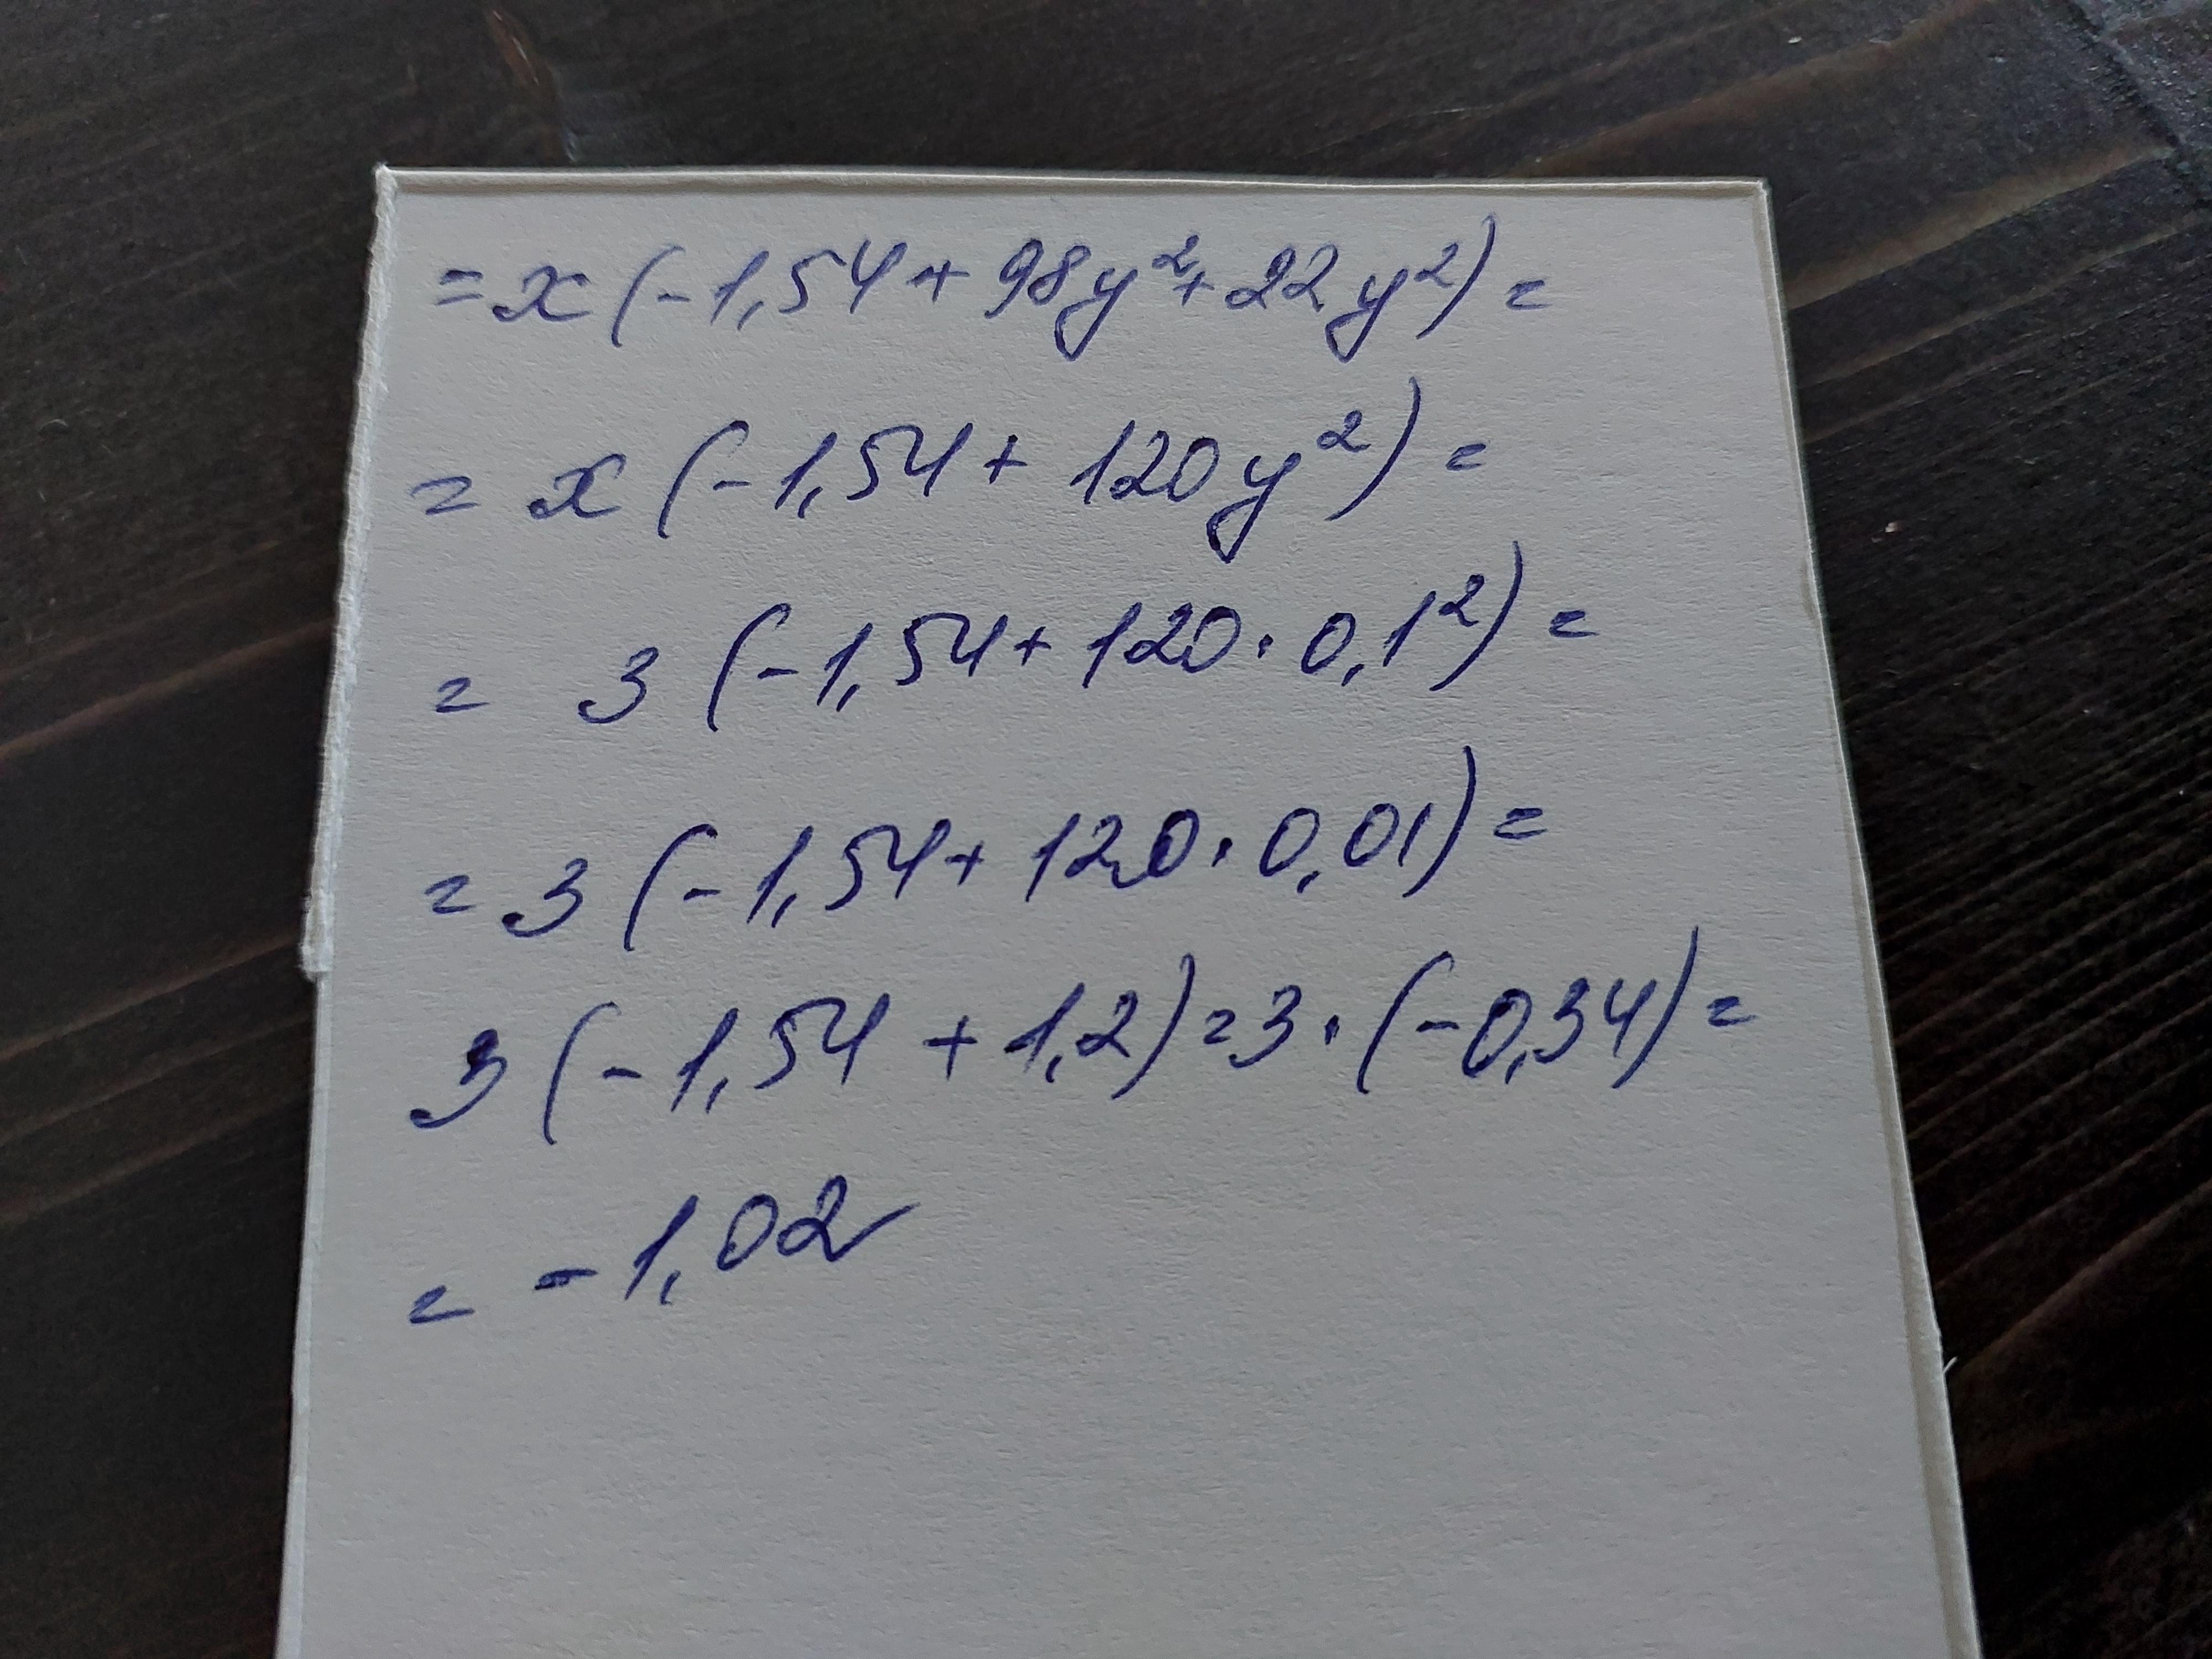 =x(-1,54+98y²+22y²)=
=x(-1,54+120y²)=
= 3(-1,54+120·0,1²)=
=3(-1,54+120·0,01)=
3(-1,54+1,2)=3·(-0,34)=
= -1,02